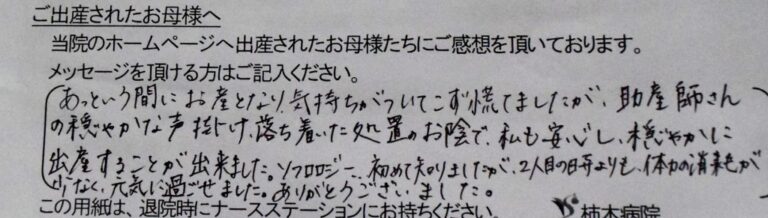 ご出産されたお母様へ
当院のホームページへ出産されたお母様たちにご感想を頂いております。
メッセージを頂ける方はご記入ください。
あっという間にお産となり、気持ちがついてこず慌てましたが、助産師さん
の穏やかな声掛け、落ち着いた処置のお陰で、私も安心し、穏やかに
出産することが出来ました。ソフロロジー、初めて知りましたが、2人目の時よりも、体力の消耗が
少なく、元気に過ごせました。ありがとうございました。
この用紙は、退院時にナースステーションにお持ちください。
柿本病院